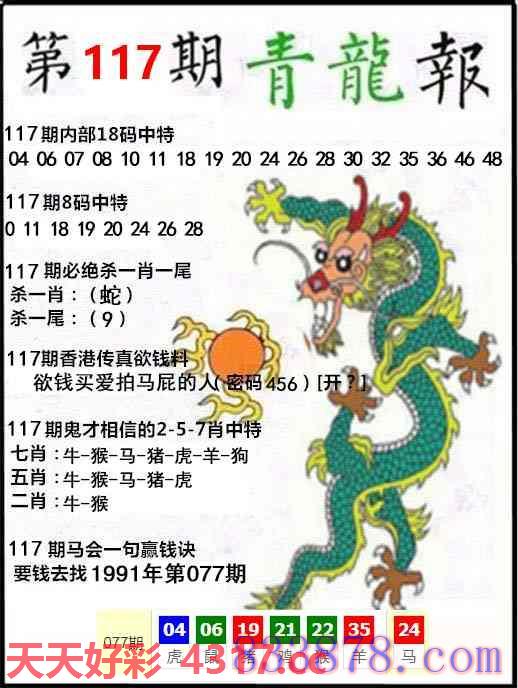 第117期 青龍報
117期内部18码中特
04 06 07 08 10 11 18 19 20 24 26 28 30 32 35 36 46 48
117期8码中特
0 11 18 19 20 24 26 28
117期必绝杀一肖一尾
杀一肖：（蛇）
杀一尾：（9）
117期香港传真欲钱料
欲钱买爱拍马屁的人（密码456）[开？]
117期鬼才相信的2-5-7肖中特
七肖：牛-猴-马-猪-虎-羊-狗
五肖：牛-猴-马-猪-虎
二肖：牛-猴
117期马会一句赢钱诀
要钱去找1991年第077期
077期 04 06 19 21 22 35 24
虎 鼠 猪 鸡 猴 羊 马
天天好彩 4317.cc